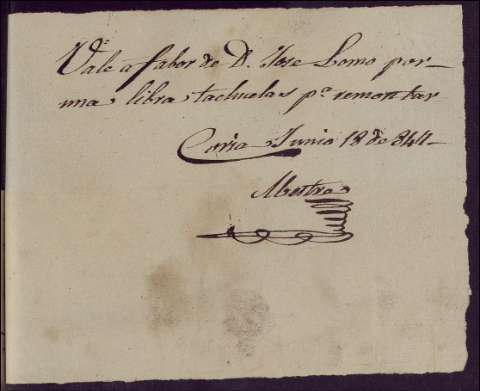 Vale a fabor de D. Jose Lomo por
una libra tachuelas pª remontar
Coria Junio 18 de 844